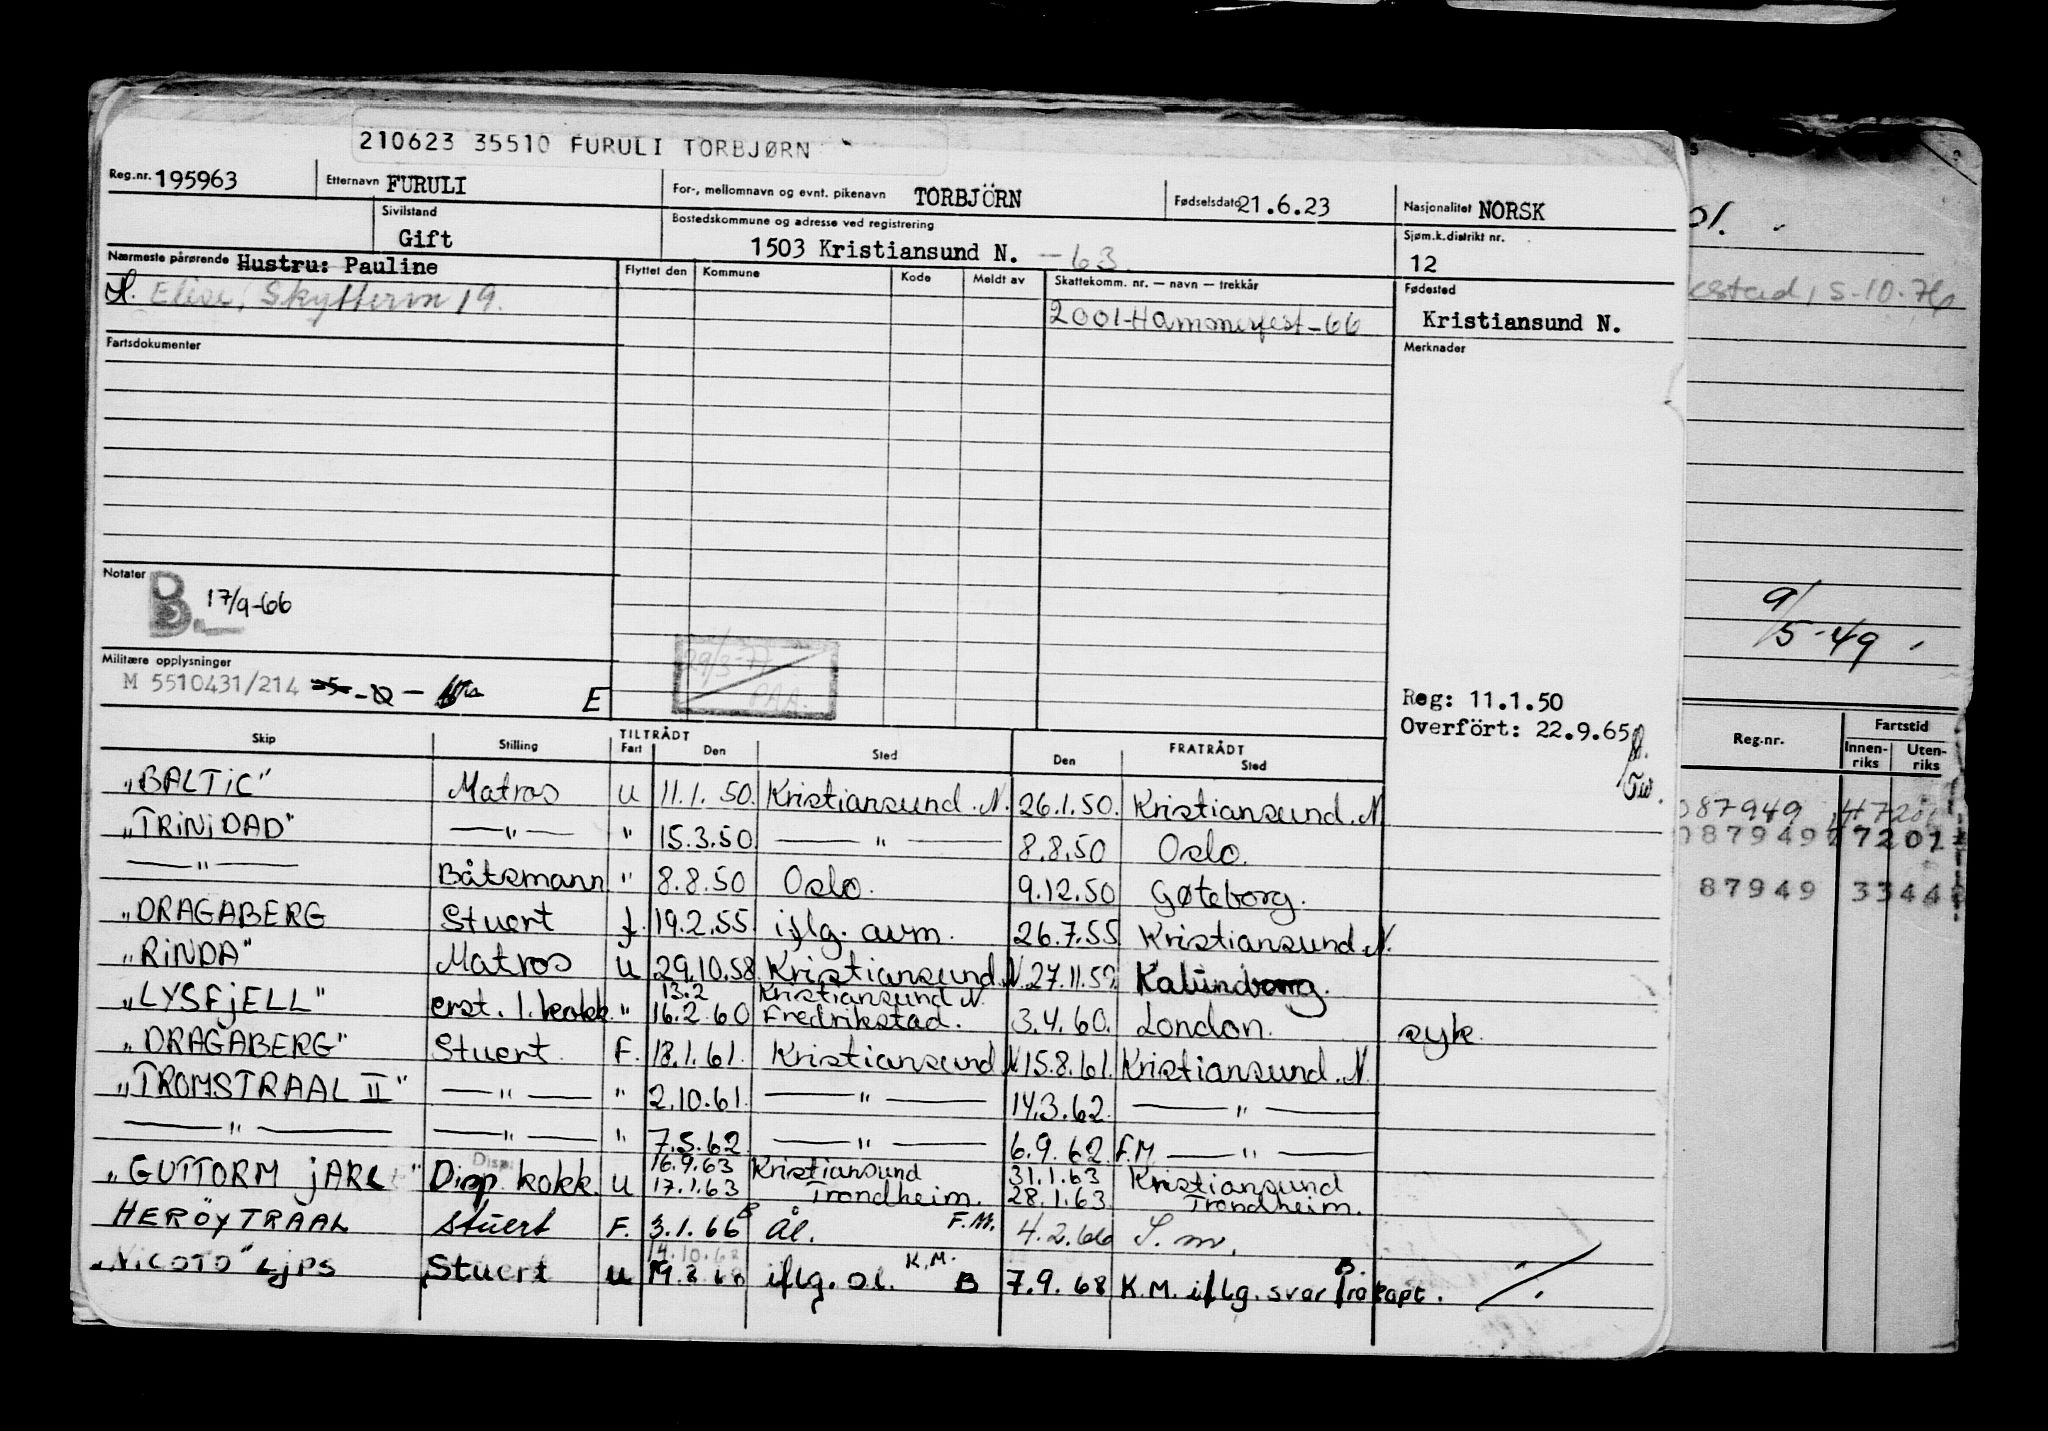 210623 35510 FURULI TORBJØRN
Reg.nr. 195963 Etternavn FURULI For-, mellomnavn og evnt. pikenavn TORBJÖRN Fødselsdato 21.6.23 Nasjonalitet NORSK
Sivilstand Gift Bostedskommune og adresse ved registrering 1503 Kristiansund N. -63. Sjøm.k.distrikt nr. 12
Nærmeste pårørende Hustru: Pauline Flyttet den Kommune Kode Meldt av Skattekomm. nr. — navn — trekkår Fødested
Elise, Skytterm 19. 2001-Hammerfest-66 Kristiansund N.
Fartsdokumenter Merknader
Notater B. 17/9-66
Militære opplysninger
M 5510431/214 E
29/3-77
PAA.
Reg: 11.1.50
Overfört: 22.9.65
Skip Stilling TILTRÅDT Fart Den Sted FRATRÅDT Den Sted
"BALTiC" Matros u 11.1.50. Kristiansund.N. 26.1.50. Kristiansund.N
"TRiNiDAD" —"— " 15.3.50 —"— 8.8.50 Oslo.
—"— Båtsmann " 8.8.50 Oslo. 9.12.50 Gøteborg.
"DRAGABERG Stuert f. 19.2.55. iflg. avm. 26.7.55 Kristiansund.N.
"RiNDA" Matros u 29.10.58 Kristiansund.N. 27.11.5 Kalundborg.
"LYSFjELL" erst. 1. kokk. " 13.2 Kristiansund N.
16.2.60 Fredrikstad. 3.4.60. London. syk.
"DRAGABERG" Stuert F. 18.1.61. Kristiansund N 15.8.61. Kristiansund.N.
"TROMSTRAAL II" —"— " 2.10.61. —"— 14.3.62. —"—
—"— —"— " 7.5.62 —"— 6.9.62 F.M. —"—
"GUTTORM jARL" Disp. kokk. u 16.9.63 Kristiansund 31.1.63 Kristiansund
17.1.63 Trondheim. 28.1.63 Trondheim.
HERÖYTRAAL Stuert F. 3.1.66 B Ål. F.M. 4.2.66 S. m.
14.10.68
"ViCOTO" Ljps Stuert u 19.8.68 iflg. o.l. K.M. B 7.9.68 K.M. iflg. svar fra kapt. B.
5-10-76
9/5-49
Reg.nr. Fartstid Innen-riks Uten-riks
087949
087949 7201
87949 3344